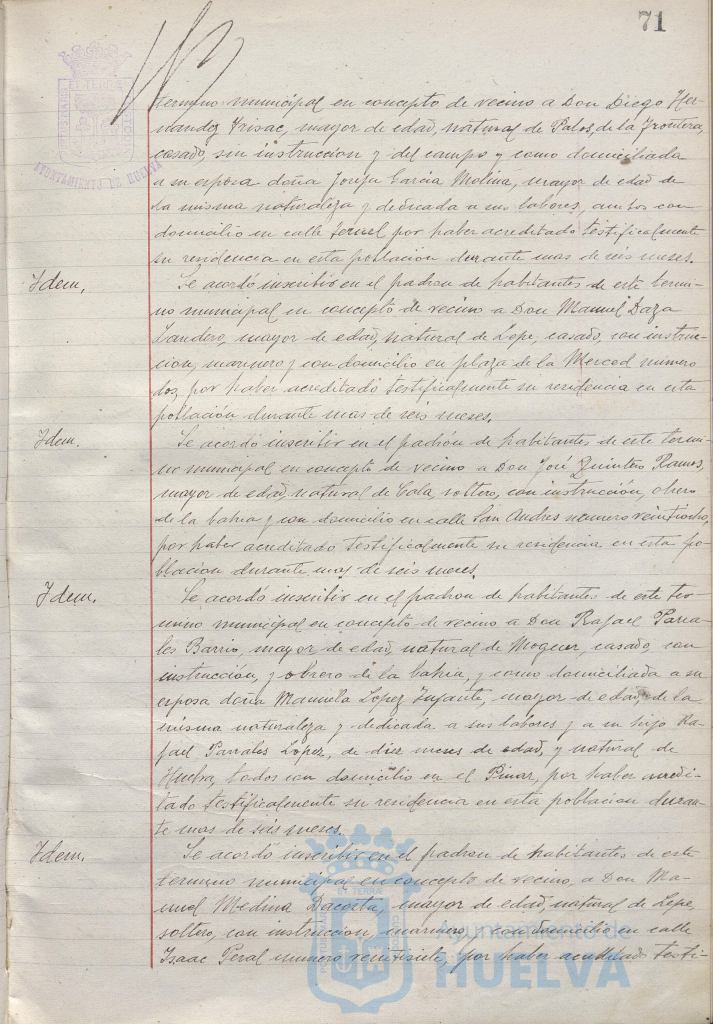 71
termino municipal en concepto de vecino a Don Diego Her-
nandez Frisac, mayor de edad, natural de Palos, de la Frontera,
casado, sin instruccion y del campo y como domiciliada
a su esposa doña Josefa Garcia Molina, mayor de edad de
la misma naturaleza y dedicada a sus labores, ambos con
domicilio en calle Teruel por haber acreditado testificalmente
su residencia en esta poblacion durante mas de seis meses.
Idem. Se acordó inscribir en el padron de habitantes de este termi-
no municipal en concepto de vecino a Don Manuel Daza
Landero, mayor de edad, natural de Lepe, casado, con instruc-
cion, marinero y con domicilio en plaza de la Merced numero
dos, por haber acreditado testificalmente su residencia en esta
población durante mas de seis meses.
Idem. Se acordó inscribir en el padrón de habitantes, de este termi-
no municipal en concepto de vecino a Don José Quintero Ramos,
mayor de edad, natural de Cala, soltero, con instrucción, obrero
de la bahia y con domicilio en calle San Andres numero veintiocho,
por haber acreditado testificalmente su residencia en esta po-
blacion durante mas de seis meses.
Idem. Se acordó inscribir en el padron de habitantes de este ter-
mino municipal en concepto de vecino a Don Rafael Parra-
les Barrio, mayor de edad, natural de Moguer, casado, con
instrucción, y obrero de la bahia, y como domiciliada a su
esposa doña Manuela Lopez Infante, mayor de edad, de la
misma naturaleza y dedicada a sus labores y a su hijo Ra-
fael Parrales Lopez, de diez meses de edad, y natural de
Huelva, todos con domicilio en el Pinar, por haber acredi-
tado testificalmente su residencia en esta poblacion duran-
te mas de seis meses.
Idem. Se acordó inscribir en el padron de habitantes de este
termino municipal en concepto de vecino, a Don Ma-
nuel Medina Dacosta, mayor de edad, natural de Lepe,
soltero, con instruccion, marinero, y con domicilio en calle
Isaac Peral numero veintisiete, por haber acreditado testi-
AYUNTAMIENTO DE HUELVA
Ayuntamiento de
HUELVA